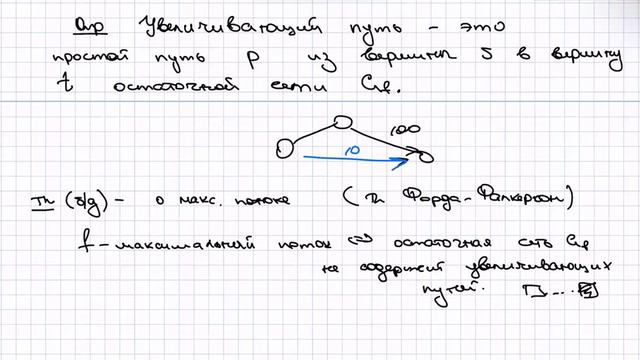 Опр Увеличивающий путь - это
простой путь p из вершины s в вершину
t остаточной сети Gf.
100
10
Th (б/д) - о макс. потоке (Th Форда-Фалкерсон)
f - максимальный поток <=> остаточная сеть Gf
не содержит увеличивающих
путей.